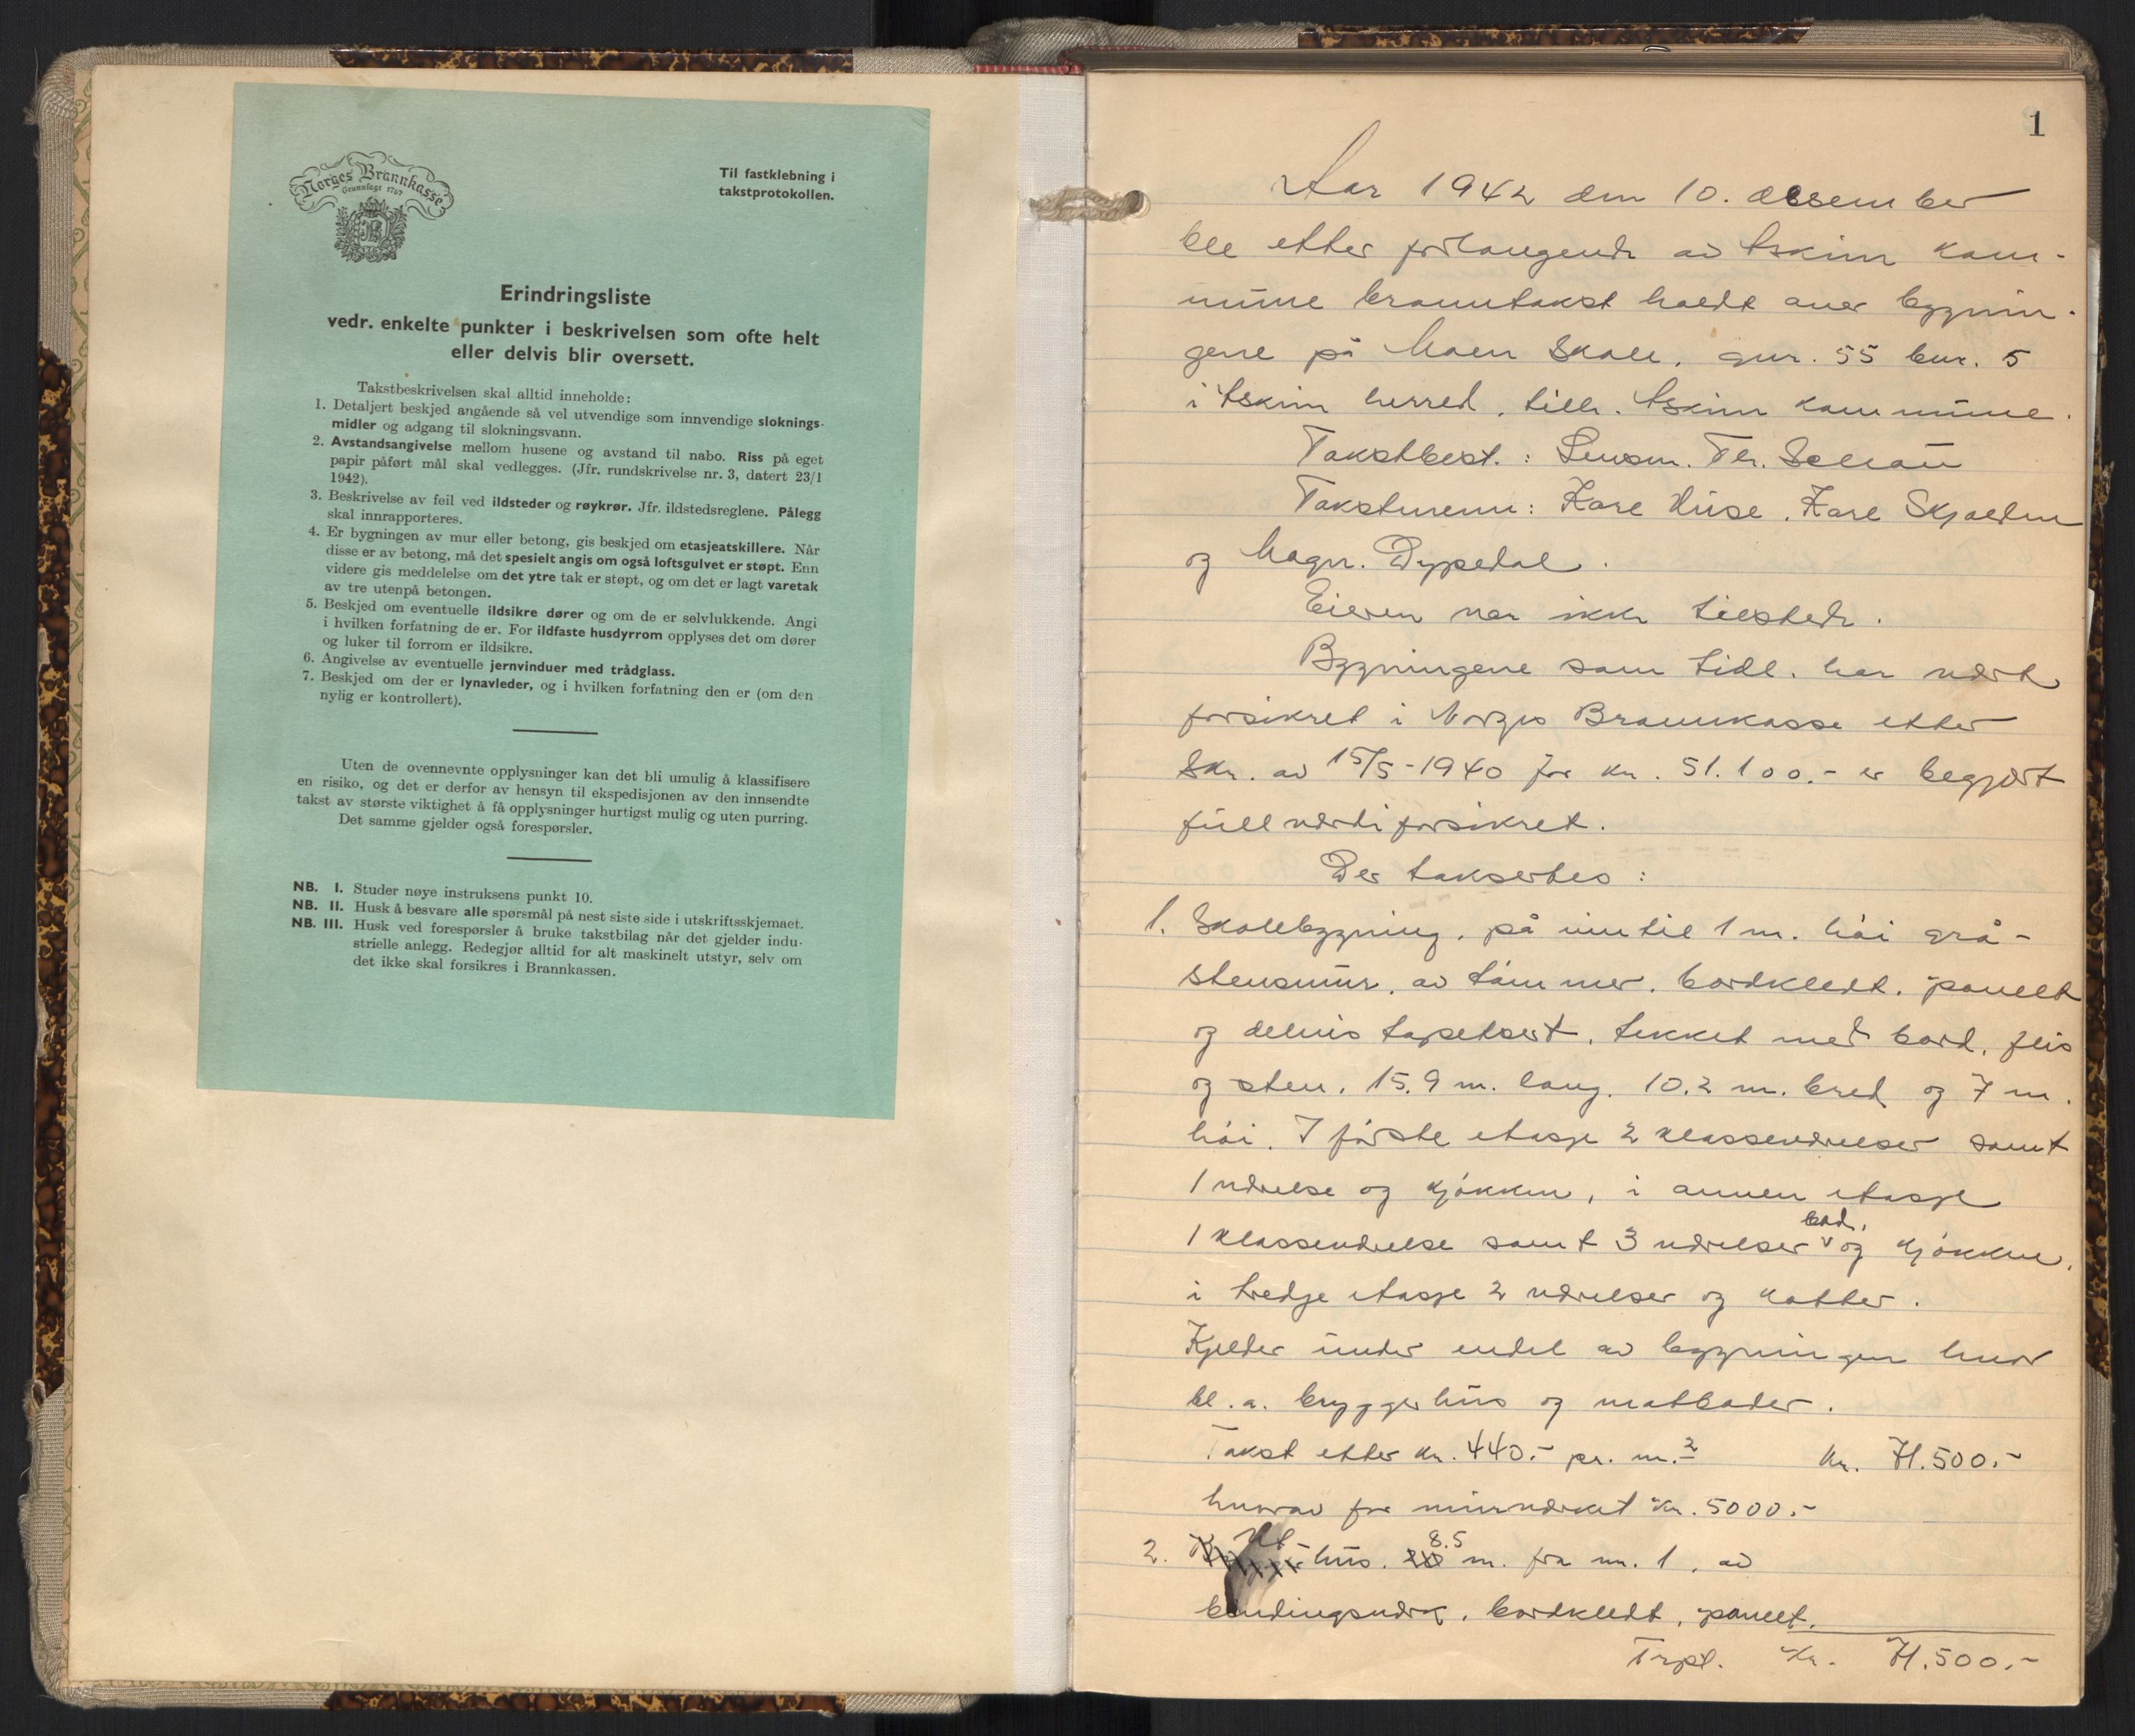 Norges Brannkasse
Grunnlagt 1767
Til fastklebning i
takstprotokollen.
Erindringsliste
vedr. enkelte punkter i beskrivelsen som ofte helt
eller delvis blir oversett.
Takstbeskrivelsen skal alltid inneholde:
1. Detaljert beskjed angående så vel utvendige som innvendige sloknings-
midler og adgang til slokningsvann.
2. Avstandsangivelse mellom husene og avstand til nabo. Riss på eget
papir påført mål skal vedlegges. (Jfr. rundskrivelse nr. 3, datert 23/1
1942).
3. Beskrivelse av feil ved ildsteder og røykrør. Jfr. ildstedsreglene. Pålegg
skal innrapporteres.
4. Er bygningen av mur eller betong, gis beskjed om etasjeatskillere. Når
disse er av betong, må det spesielt angis om også loftsgulvet er støpt. Enn
videre gis meddelelse om det ytre tak er støpt, og om det er lagt varetak
av tre utenpå betongen.
5. Beskjed om eventuelle ildsikre dører og om de er selvlukkende. Angi
i hvilken forfatning de er. For ildfaste husdyrrom opplyses det om dører
og luker til forrom er ildsikre.
6. Angivelse av eventuelle jernvinduer med trådglass.
7. Beskjed om der er lynavleder, og i hvilken forfatning den er (om den
nylig er kontrollert).
Uten de ovennevnte opplysninger kan det bli umulig å klassifisere
en risiko, og det er derfor av hensyn til ekspedisjonen av den innsendte
takst av største viktighet å få opplysninger hurtigst mulig og uten purring.
Det samme gjelder også forespørsler.
NB. I. Studer nøye instruksens punkt 10.
NB. II. Husk å besvare alle spørsmål på nest siste side i utskriftsskjemaet.
NB. III. Husk ved forespørsler å bruke takstbilag når det gjelder indu-
strielle anlegg. Redegjør alltid for alt maskinelt utstyr, selv om
det ikke skal forsikres i Brannkassen.
1
Aar 1942 den 10. desember
ble etter forlangende av Askim kom-
mune branntakst holdt over bygnin-
gene på Moen Skole, gnr. 55 bnr. 5
i Askim herred, tilh. Askim kommune.
Takstbest.: Lensm. Th. Schau
Takstmenn: Kare Huse, Kare Skjolden
og Magn. Dypedal.
Eieren var ikke tilstede.
Bygningene som tidl. har vært
forsikret i Norges Brannkasse etter
Skr. av 15/5-1940 for kr. 51.100.- er begjært
fullverdiforsikret.
Der taksertes:
1. Skolebygning, på inntil 1 m. høi grå-
stensmur, av tømmer, bordkledt, panelt
og delvis tapetsert, tekket med bord, flis
og sten, 15.9 m. lang, 10.2 m. bred og 7 m.
høi. I første etasje 2 klasseværelser samt
1 værelse og kjøkken, i annen etasje
1 klasseværelse samt 3 værelser bad, og kjøkken,
i tredje etasje 2 værelser og kotter.
Kjelder under endel av bygningen hvor
bl.a. bryggerhus og matboder.
Takst etter kr. 440.- pr. m.2 kr. 71.500.-
hvorav for murverket kr. 5000.-
2. Ut hus, 8.5 m. fra nr. 1, av
bindingsverk, bordkledt, panelt,
Trpt. Kr. 71.500.-